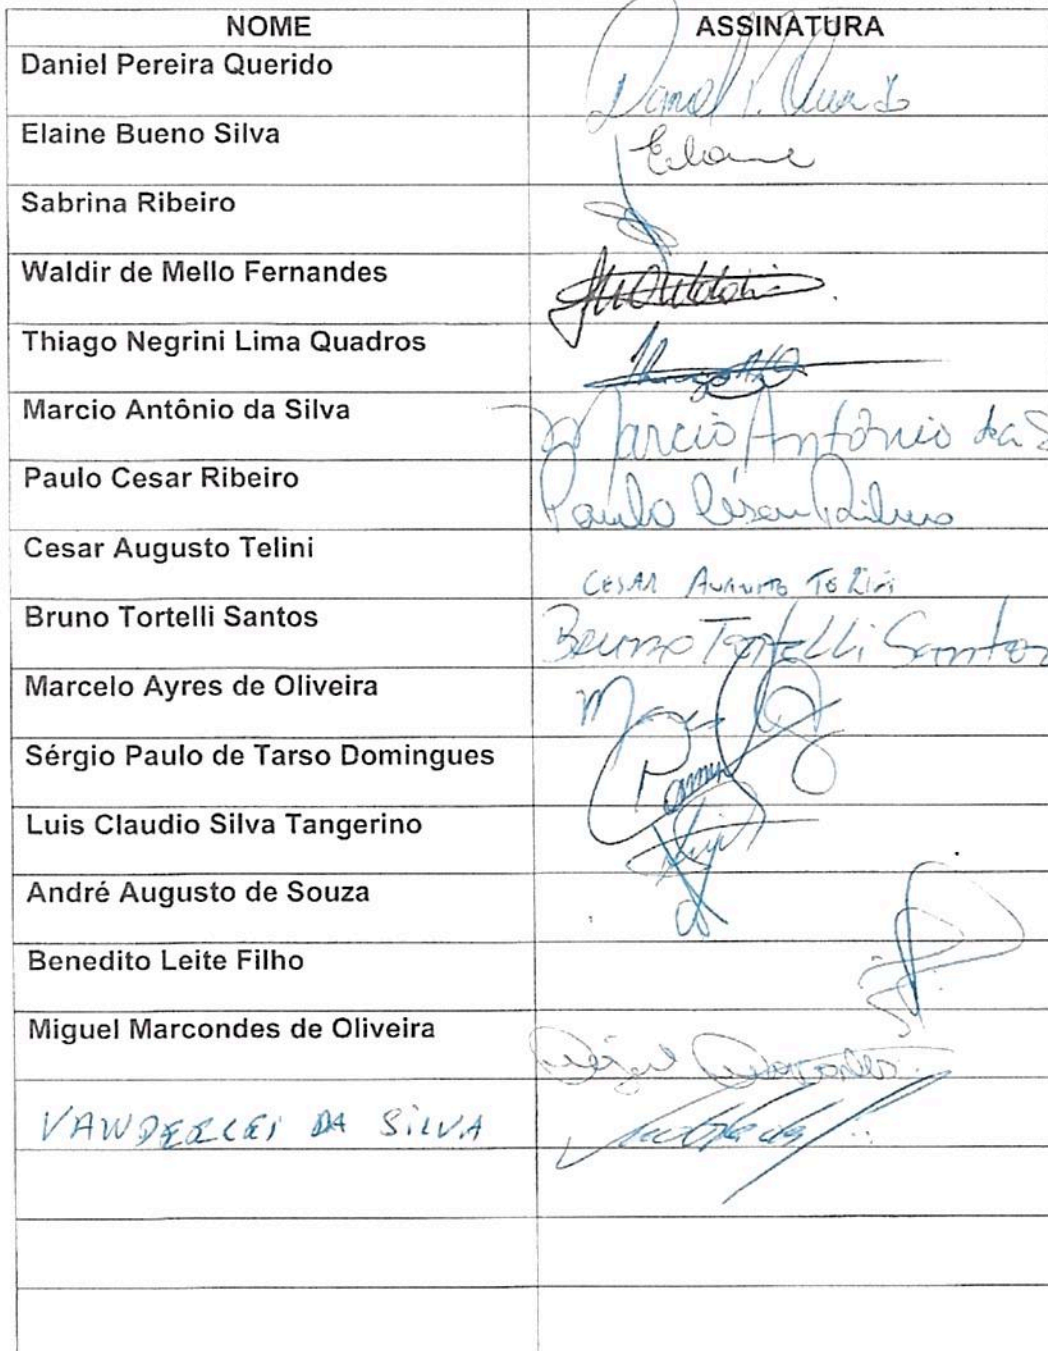 NOME ASSINATURA
Daniel Pereira Querido Daniel P.
Elaine Bueno Silva Elaine
Sabrina Ribeiro
Waldir de Mello Fernandes
Thiago Negrini Lima Quadros
Marcio Antônio da Silva Marcio Antônio da S
Paulo Cesar Ribeiro Paulo César Ribeiro
Cesar Augusto Telini CESAR AUGUSTO TELINI
Bruno Tortelli Santos Bruno Tortelli Santos
Marcelo Ayres de Oliveira
Sérgio Paulo de Tarso Domingues
Luis Claudio Silva Tangerino
André Augusto de Souza
Benedito Leite Filho
Miguel Marcondes de Oliveira
VANDERLEI DA SILVA